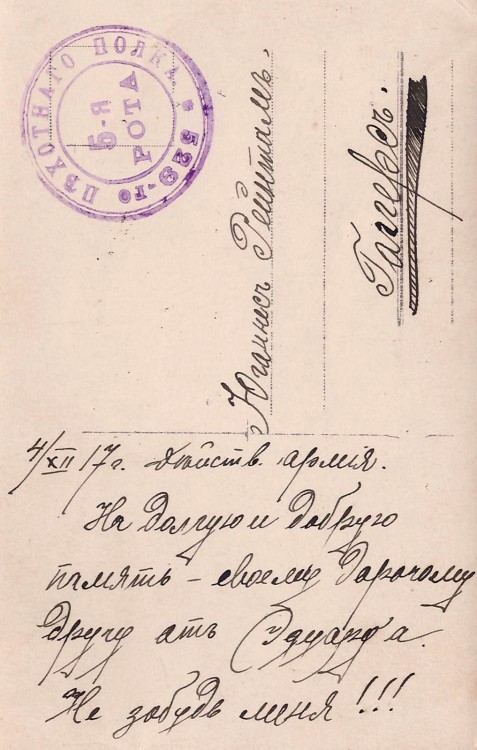 529-го ПѢХОТНАГО ПОЛКА
5-я
РОТА
Юганнесъ
Гаггерсъ.
4/XII 17 г. Дѣйств. армія.
На долгую и добрую
память – своему дорогому
другу отъ Эдуарда.
Не забудь меня!!!